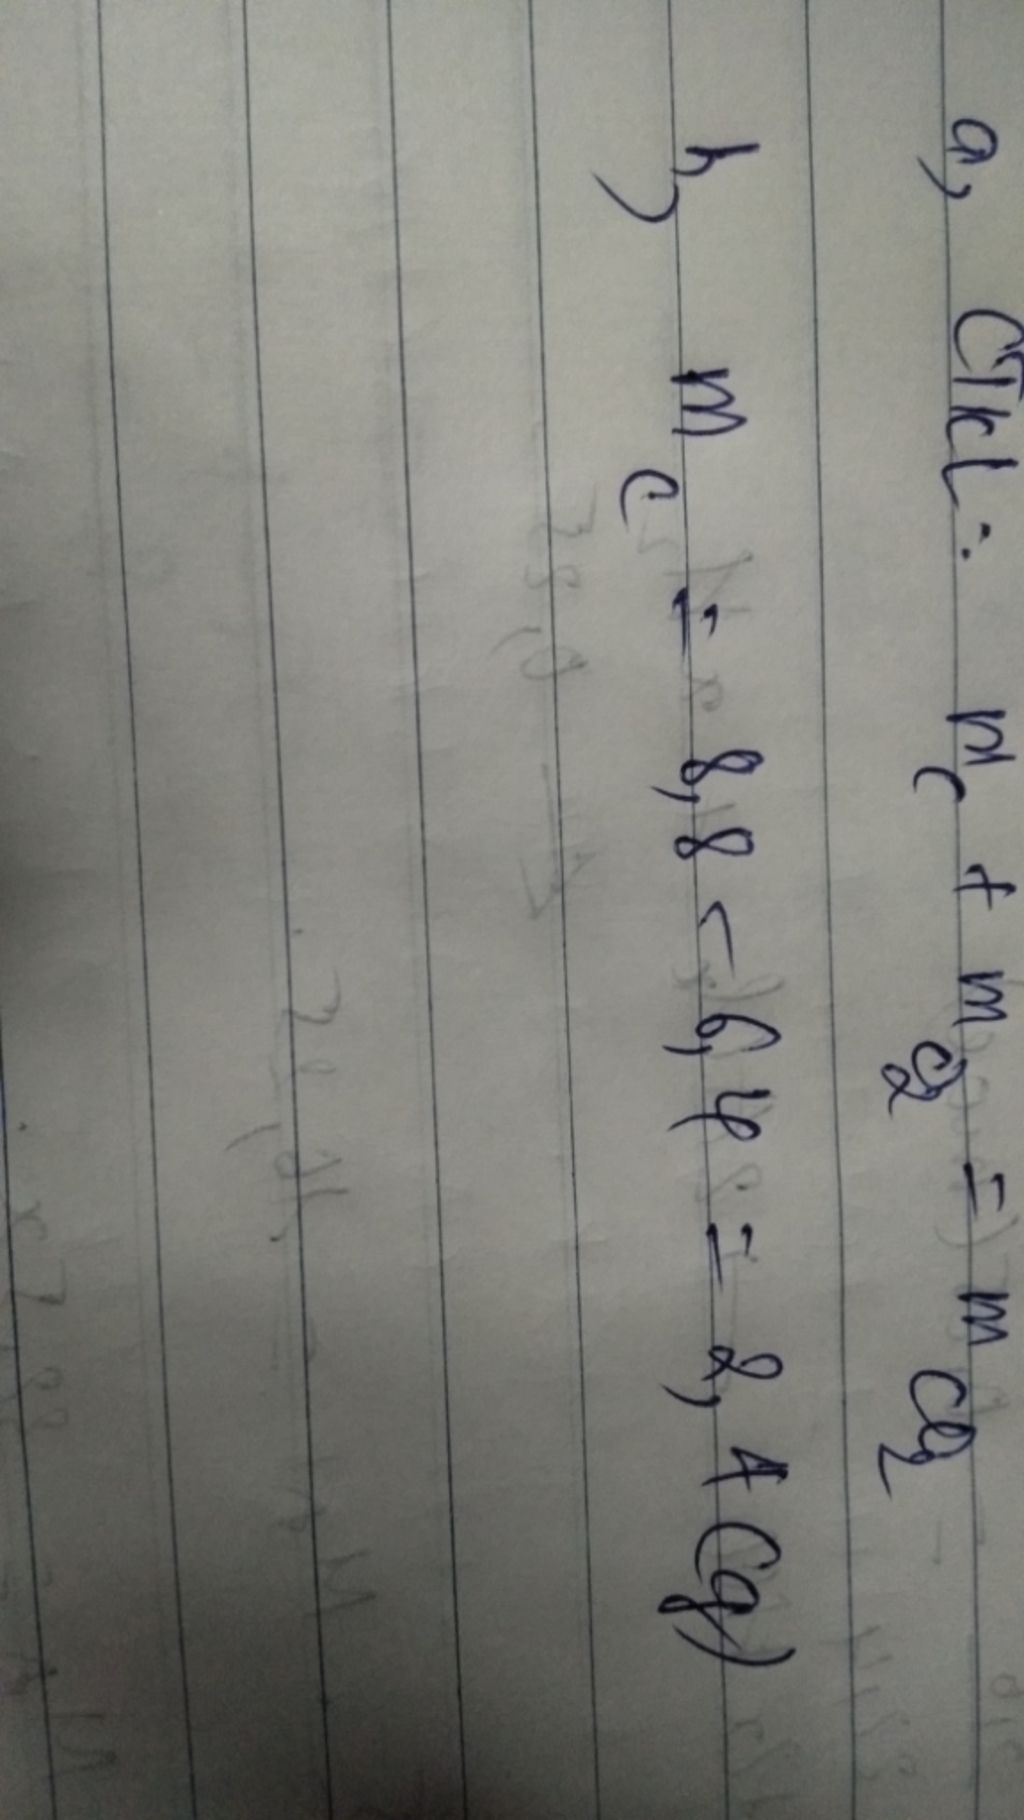 a, CTKL: m_C + m_O2 = m_CO2
b, m_C = 8,8 - 6,4 = 2,4 (g)